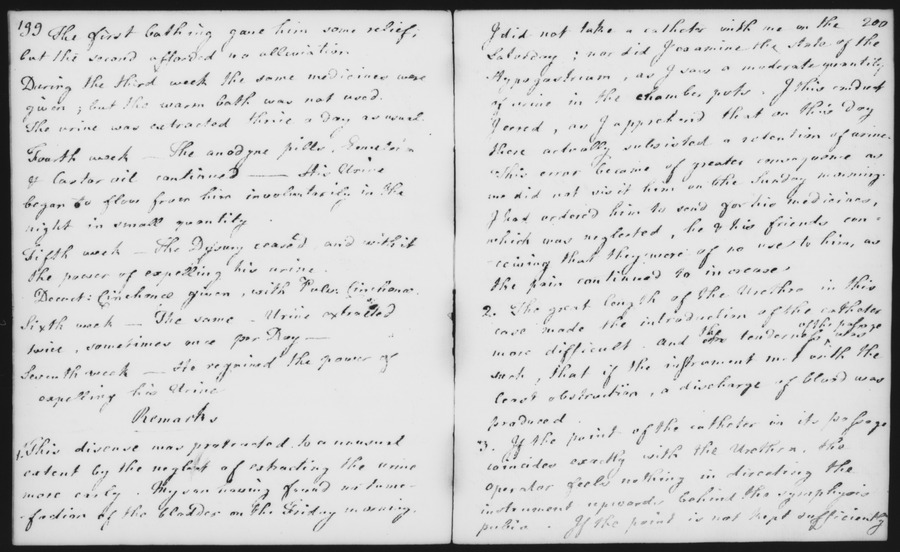 199
The first bathing gave him some relief;
but the second afforded no alleviation
During the third week the same medicines were
given; but the warm bath was not used.
The urine was extracted thrice a day as usual.
Fourth week — The anodyne pills,
& Castor oil continued — His Urine
began to flow from him involuntarily in the
night in small quantity.
Fifth week — The Dysury ceased, and with it
the power of expelling his urine.
Decoct: Cinchonæ given, with Pulv: Cinchonæ.
Sixth week — The same. Urine extracted
twice, sometimes once per Day —
Seventh week — He regained the power of
expelling his Urine
Remarks
1. This disease was protracted to a unusual
extent by the neglect of extracting the urine
more early. having found no tume-
-faction of the bladder on the Friday morning.
200
I did not take a catheter with me on the
Saturday; nor did I examine the state of the
Hypogastrium, as I saw a moderate quantity
of urine in the chamber pots. I this conduct
I erred, as I apprehend that on this day
there actually subsisted a retention of urine.
This error became of greater consequence as
we did not visit him on the Sunday morning.
I had ordered him to send for his medicines,
which was neglected, he & his friends con-
-ceiving that they were of no use to him, as
the pain continued to increase
2. The great length of the Urethra in this
case made the introduction of the catheter
more difficult. and the tenderness of the passage was
such, that if the instrument met with the
least obstruction, a discharge of blood was
produced
3. If the point of the catheter in its passage
coincides exactly with the Urethra, the
operator feels nothing in directing the
instrument upward behind the symphysis
pubis. If the point is not kept sufficiently